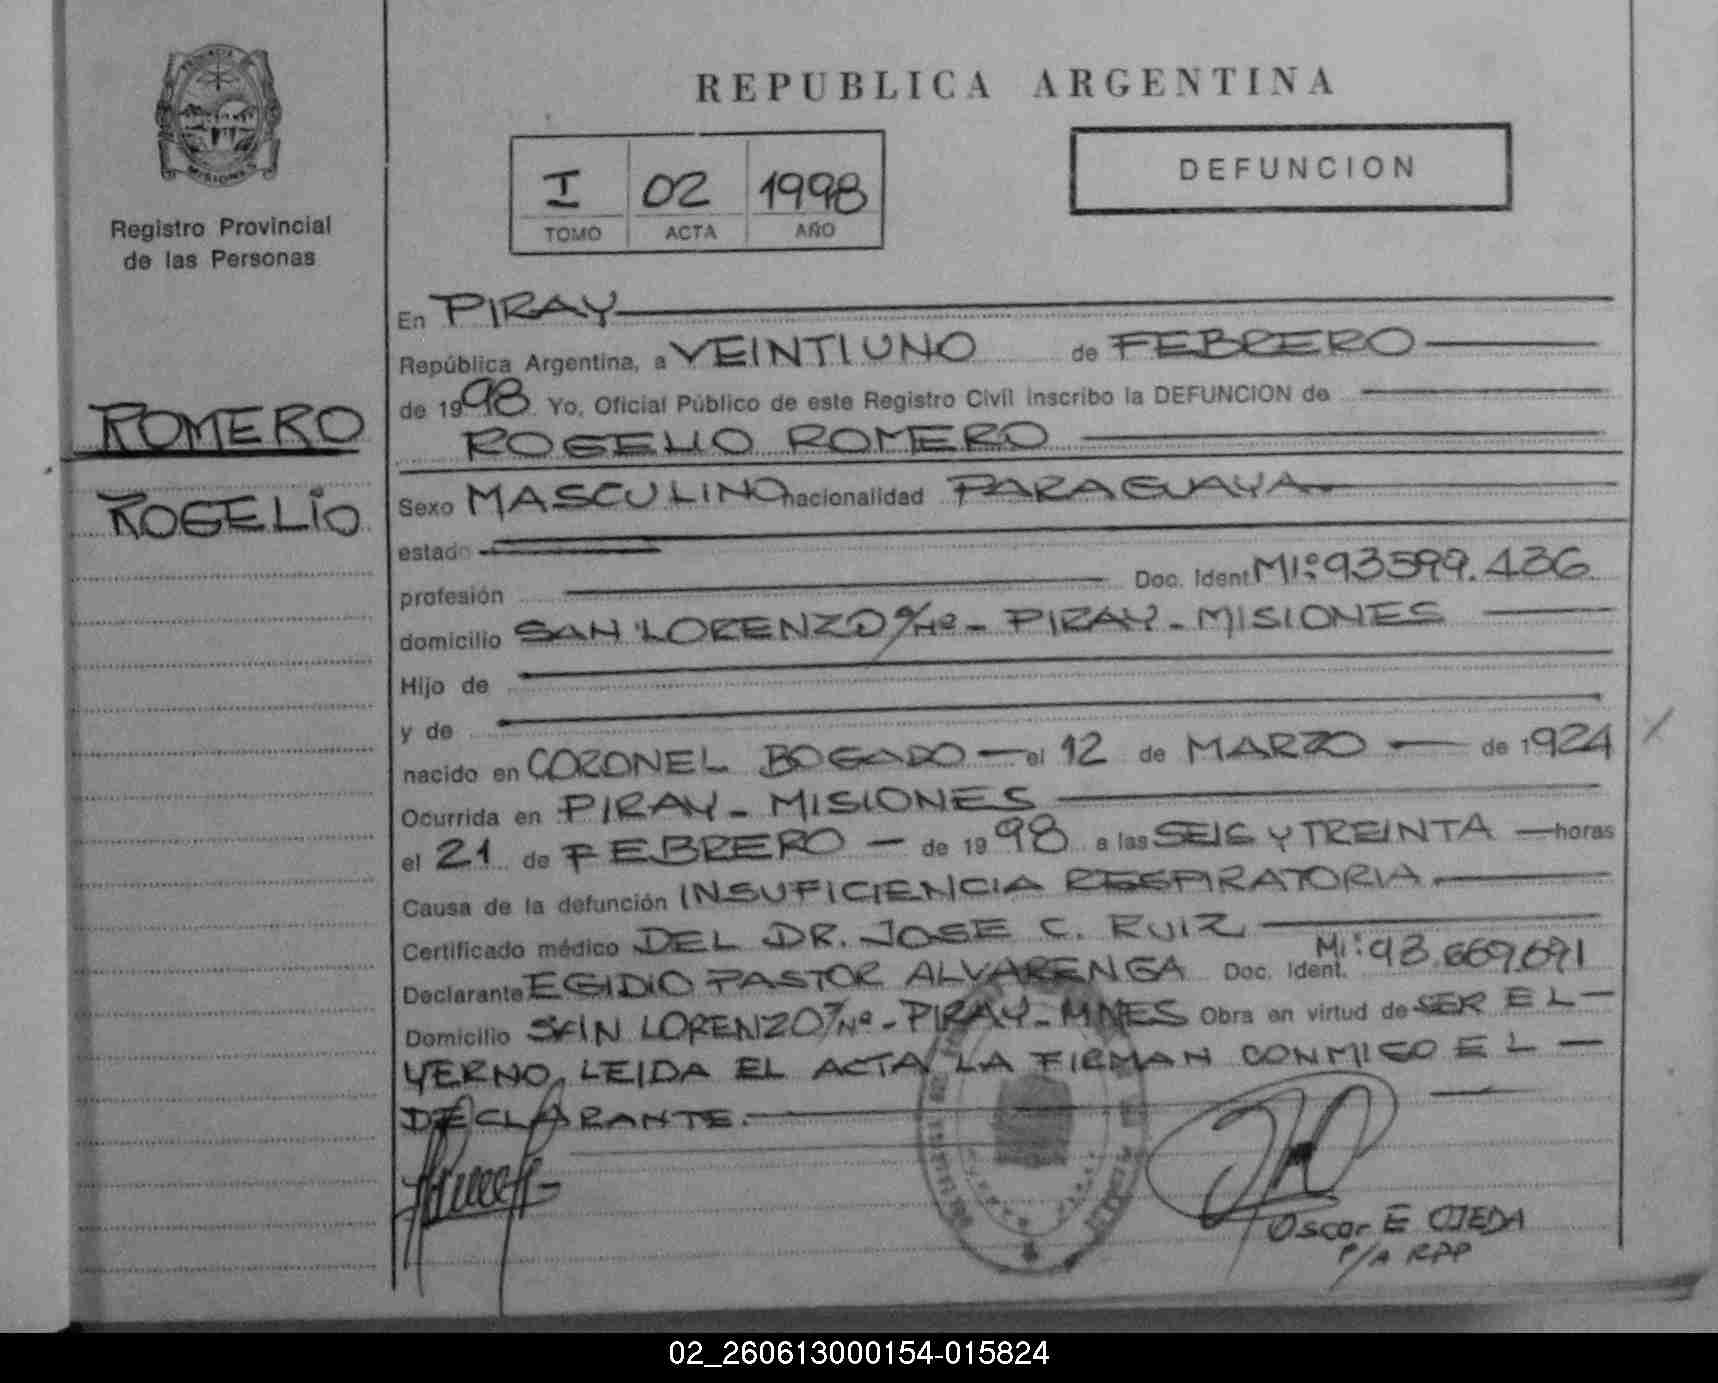 PROVINCIA
MISIONES
Registro Provincial
de las Personas
ROMERO
ROGELIO
REPUBLICA ARGENTINA
I 02 1998
TOMO ACTA AÑO
DEFUNCION
En PIRAY
República Argentina, a VEINTIUNO de FEBRERO
de 1998 Yo, Oficial Público de este Registro Civil inscribo la DEFUNCION de
ROGELIO ROMERO
Sexo MASCULINO nacionalidad PARAGUAYA
estado
profesión Doc. Ident MI: 93599.436
domicilio SAN LORENZO S/Nº - PIRAY - MISIONES
Hijo de
y de
nacido en CORONEL BOGADO el 12 de MARZO de 1924
Ocurrida en PIRAY - MISIONES
el 21 de FEBRERO de 1998 a las SEIS Y TREINTA horas
Causa de la defunción INSUFICIENCIA RESPIRATORIA
Certificado médico DEL DR. JOSE C. RUIZ
Declarante EGIDIO PASTOR ALVARENGA Doc. Ident. MI: 93.669.691
Domicilio SAN LORENZO S/Nº - PIRAY - MNES Obra en virtud de SER EL
YERNO, LEIDA EL ACTA LA FIRMAN CONMIGO EL
DECLARANTE.
Oscar E OJEDA
P/A RPP
02_260613000154-015824